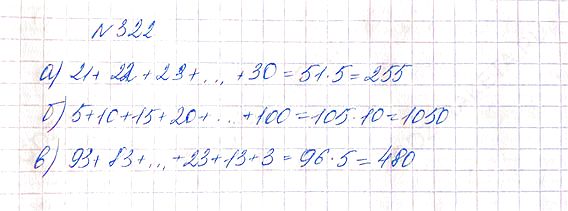 № 322
а) 21 + 22 + 23 + ... + 30 = 51 · 5 = 255
б) 5 + 10 + 15 + 20 + ... + 100 = 105 · 10 = 1050
в) 93 + 83 + ... + 23 + 13 + 3 = 96 · 5 = 480